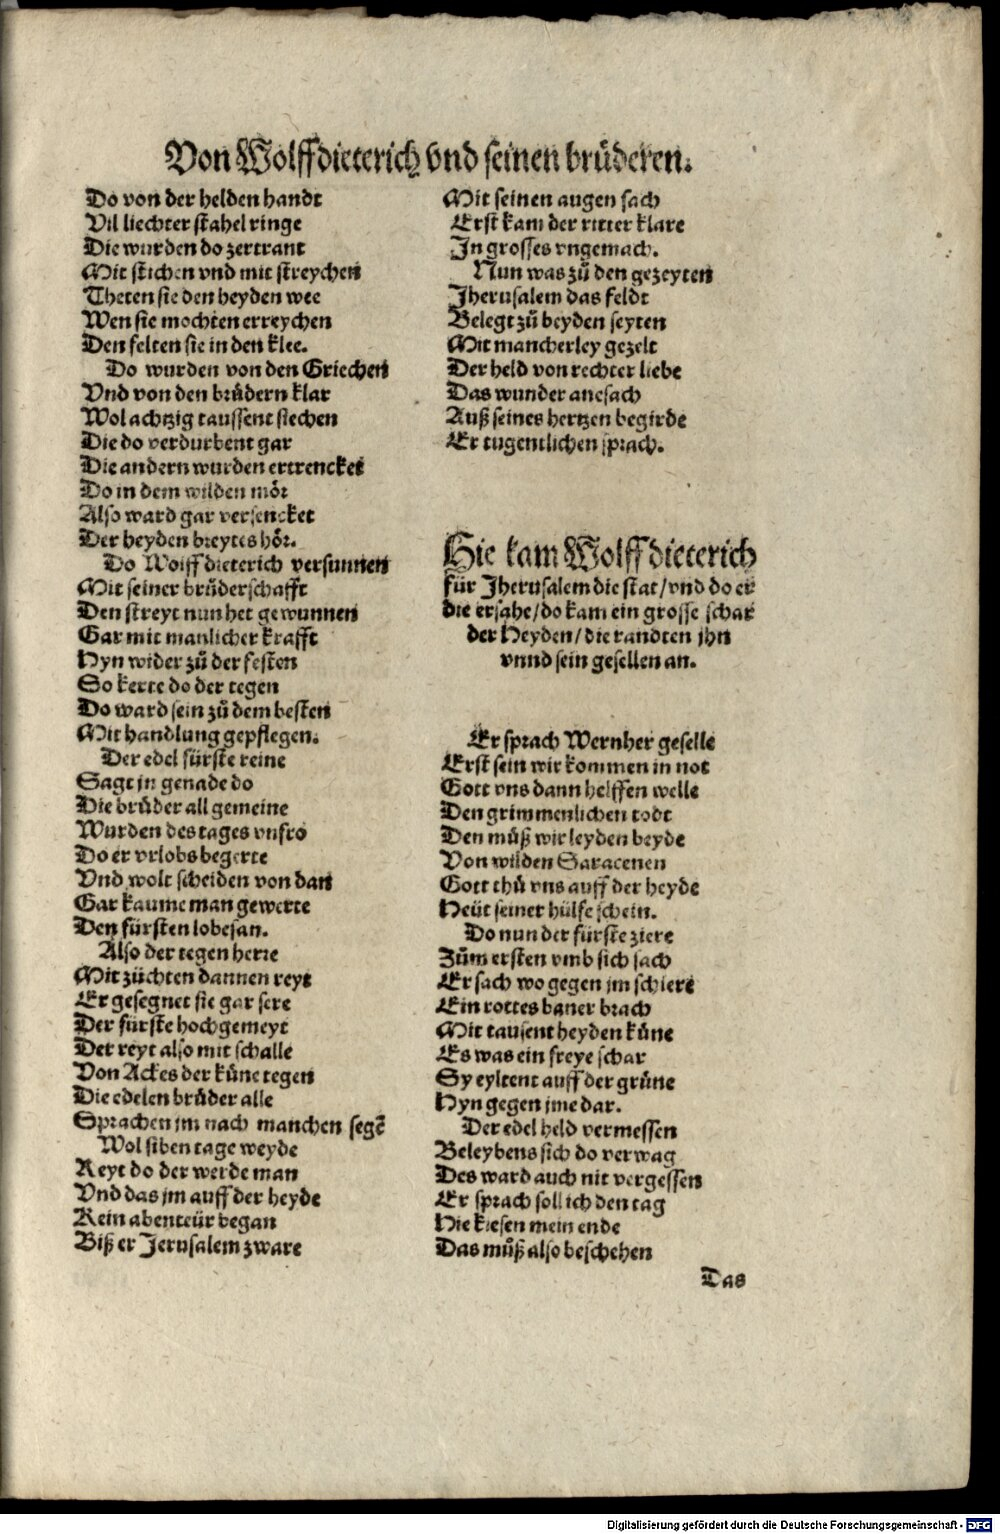 Von Wolffdieterich vnd seinen brůderen.
Do von der helden handt
Vil liechter stahel ringe
Die wurden do zertrant
Mit stichen vnd mit streychen
Theten sie den heyden wee
Wen sie mochten erreychen
Den felten sie in den klee.
Do wurden von den Griechen
Vnd von den brůdern klar
Wol achtzig taussent siechen
Die do verdurbent gar
Die andern wurden ertrencket
Do in dem wilden mör
Also ward gar versencket
Der heyden breytes hör.
Do Wolffdieterich versunnen
Mit seiner brůderschafft
Den streyt nun het gewunnen
Gar mit manlicher krafft
Hyn wider zů der festen
So kerte do der tegen
Do ward sein zů dem besten
Mit handlung gepflegen.
Der edel fürste reine
Sagt in genade do
Die brůder all gemeine
Wurden des tages vnfro
Do er vrlobs begerte
Vnd wolt scheiden von dan
Gar kaume man gewerte
Den fürsten lobesan.
Also der tegen herre
Mit züchten dannen reyt
Er gesegnet sie gar sere
Der fürste hochgemeyt
Der reyt also mit schalle
Von Ackes der küne tegen
Die edelen brůder alle
Sprachen im nach manchen segē
Wol siben tage weyde
Reyt do der werde man
Vnd das im auff der heyde
Kein abenteür began
Biß er Jerusalem zware
Mit seinen augen sach
Erst kam der ritter klare
In grosses vngemach.
Nun was zů den gezeyten
Jherusalem das feldt
Belegt zů beyden seyten
Mit mancherley gezelt
Der held von rechter liebe
Das wunder anesach
Auß seines hertzen begirde
Er tugentlichen sprach.
Hie kam Wolffdieterich
für Jherusalem die stat/vnd do er
die ersahe/do kam ein grosse schar
der Heyden/die randten jhn
vnnd sein gesellen an.
Er sprach Wernher geselle
Erst sein wir kommen in not
Gott vns dann helffen welle
Den grimmenlichen todt
Den můß wir leyden beyde
Von wilden Saracenen
Gott thů vns auff der heyde
Heüt seiner hülfe schein.
Do nun der fürste ziere
Zům ersten vmb sich sach
Er sach wo gegen im schiere
Ein rottes baner brach
Mit tausent heyden küne
Es was ein freye schar
Sy eyltent auff der grüne
Hyn gegen jme dar.
Der edel held vermessen
Beleybens sich do verwag
Des ward auch nit vergessen
Er sprach soll ich den tag
Hie kiesen mein ende
Das můß also beschehen
Das
Digitalisierung gefördert durch die Deutsche Forschungsgemeinschaft - DFG